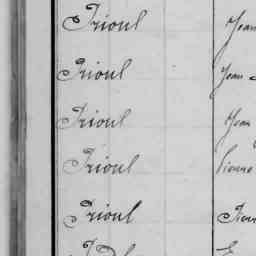 Trioul Jean
Trioul Jean
Trioul Jean
Trioul Pierre
Trioul